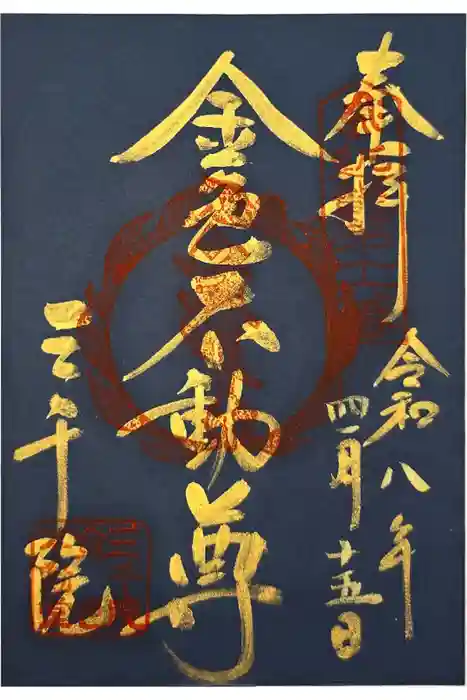 奉拝
令和八年
四月十五日
金色不動尊
三千院